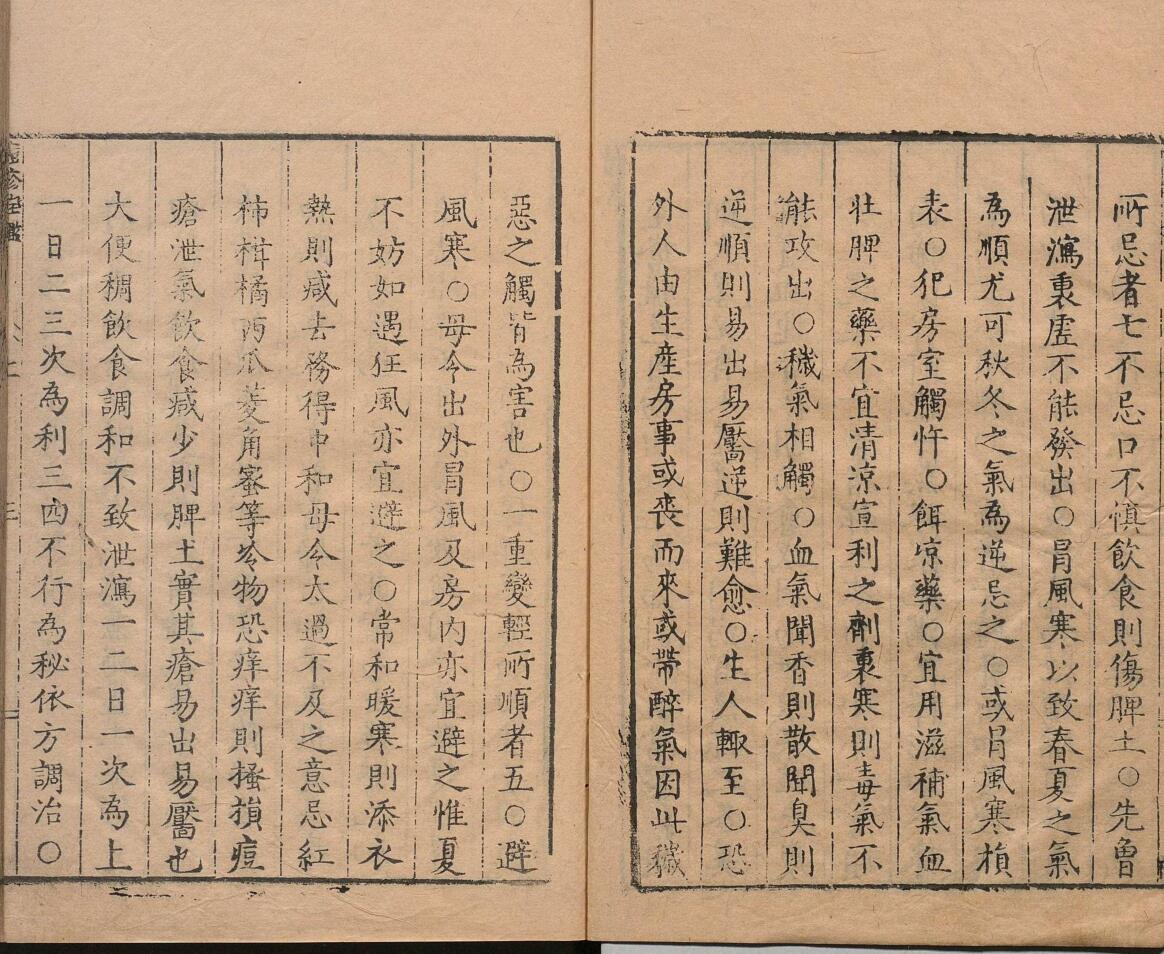 所忌者七不忌口不慎飲食則傷脾土〇先曾
泄瀉裏虛不能發出〇冐風寒以致春夏之氣
為順尤可秋冬之氣為逆忌之〇或冐風寒損
表〇犯房室觸忤〇餌凉藥〇宜用滋補氣血
壯脾之藥不宜清凉宣利之劑裏寒則毒氣不
能攻出〇穢氣相觸〇血氣聞香則散聞臭則
逆順則易出易靨逆則難愈〇生人輙至〇恐
外人由生産房事或喪而來或帶醉氣因此穢
惡之觸皆為害也〇一重變輕所順者五〇避
風寒〇毋令出外冐風及房内亦宜避之惟夏
不妨如遇狂風亦宜避之〇常和暖寒則添衣
熱則减去務得中和毋令太過不及之意忌紅
柿柑橘西瓜菱角蜜等冷物恐痒痒則搔損痘
瘡泄氣飲食减少則脾土實其瘡易出易靨也
大便稠飲食調和不致泄瀉一二日一次為上
一日二三次為利三四不行為秘依方調治〇